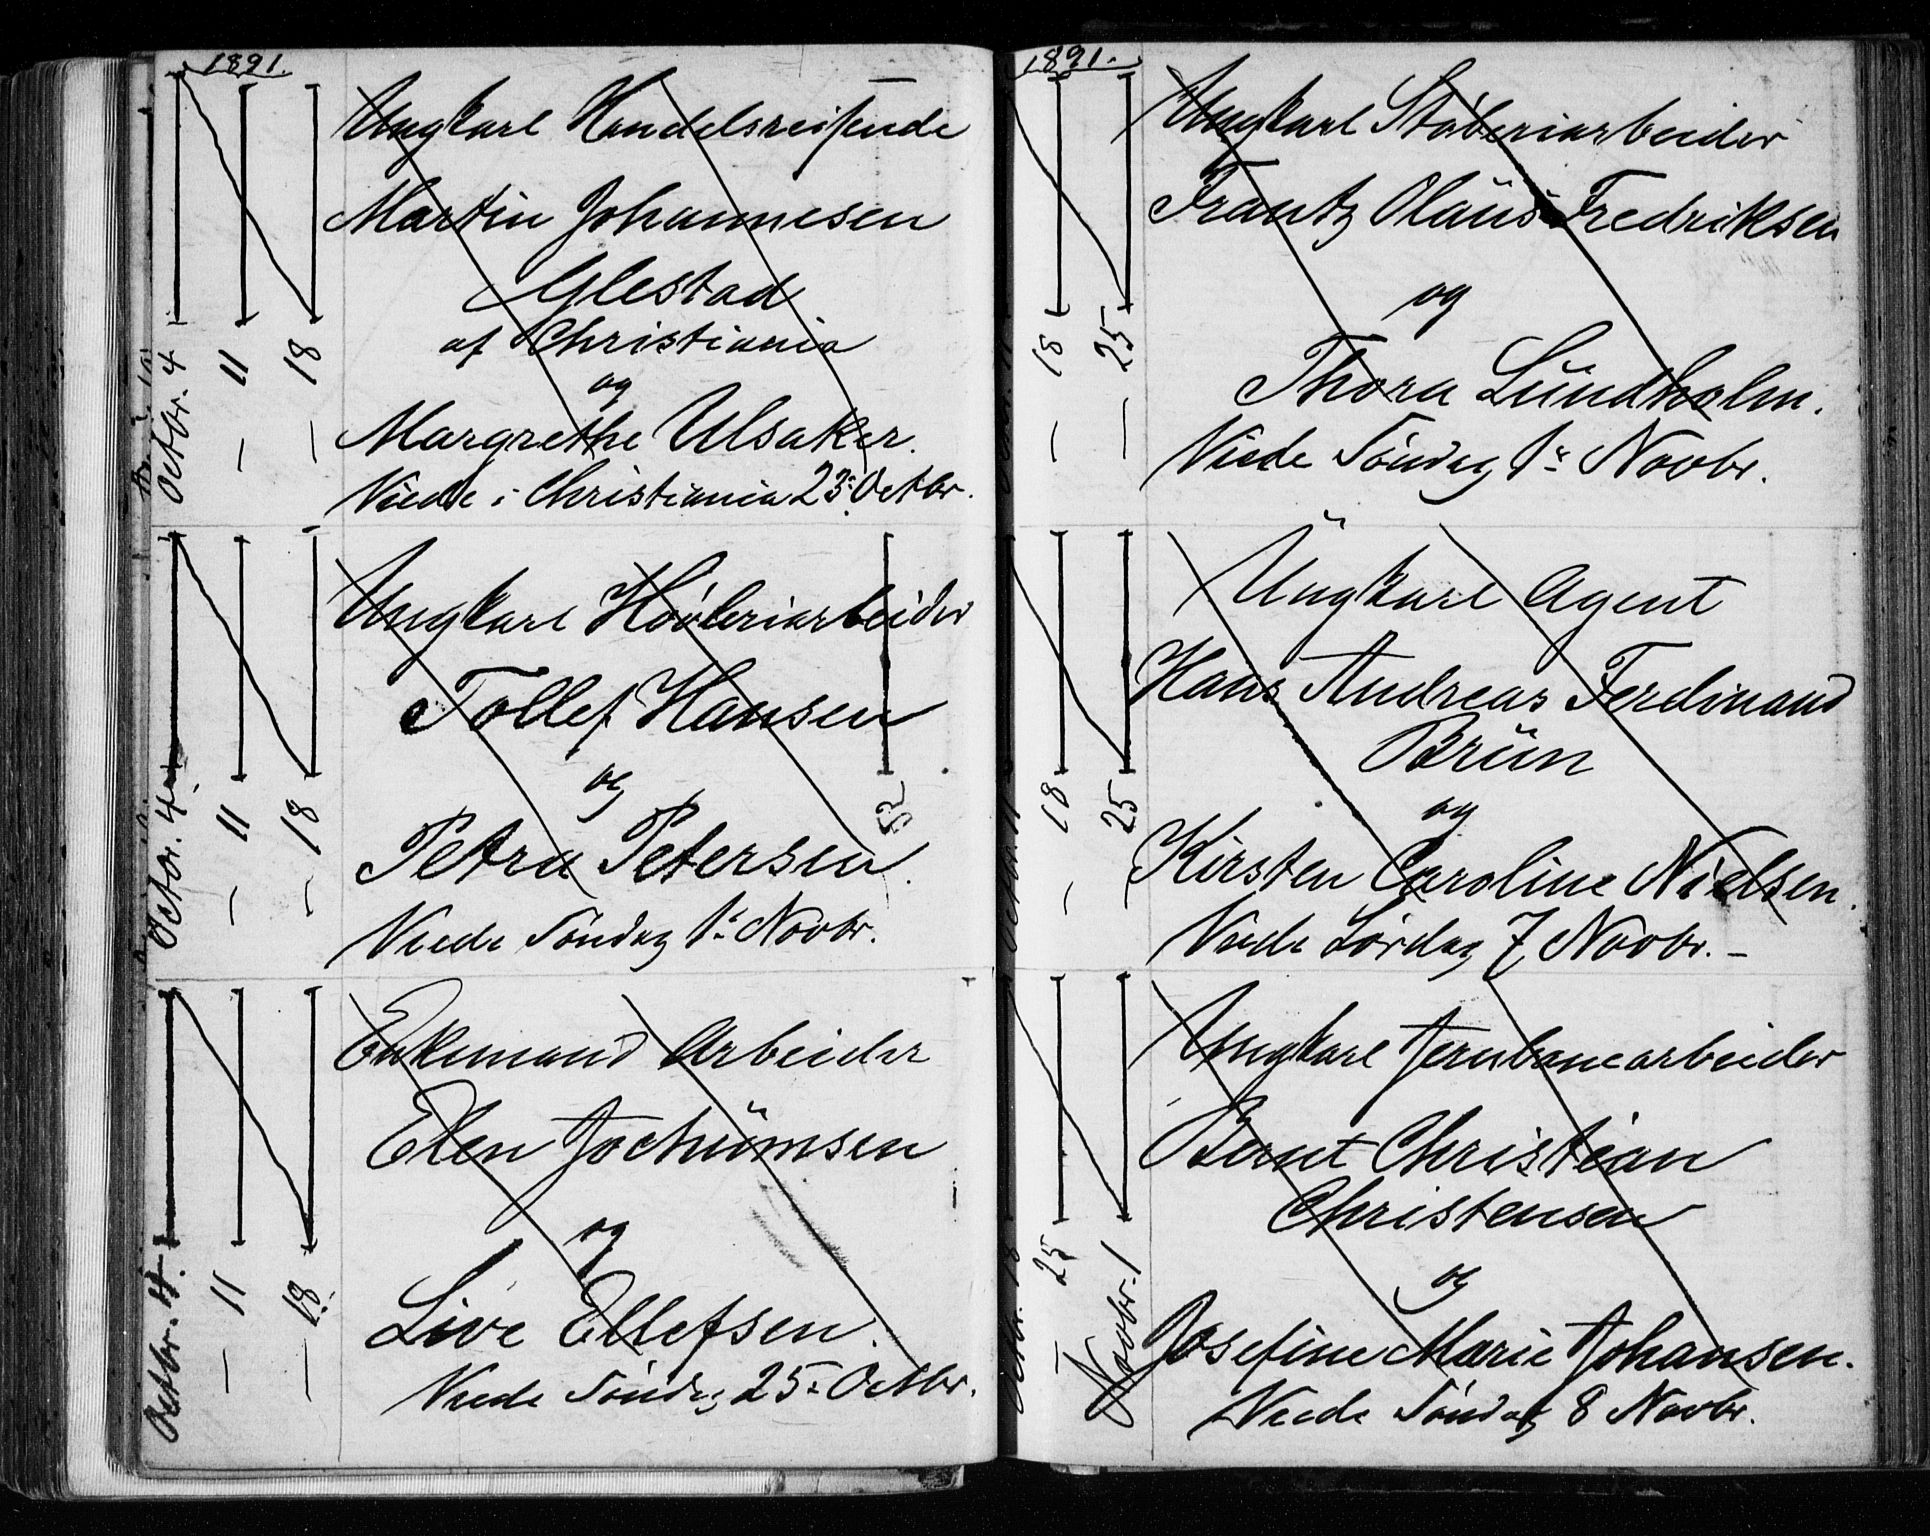 1891.
Octbr. 4 — 11 — 18
Ungkarl Handelsreisende
Martin Johannesen
Glestad
af Christiania
og
Margrethe Ulsaker.
Viede i Christiania 23: Octbr.
Octbr. 4 — 11 — 18
Ungkarl Høvleriarbeider
Tollef Hansen
og
52
Petra Petersen.
Viede Søndag 1: Novbr.
Octbr. 4. — 11 — 18.
Enkemand Arbeider
Elen Jochümsen
og
Live Ellefsen.
Viede Søndag 25: Octbr.
1891.
— 18 — 25
Ungkarl Støberiarbeider
Frantz Olaüs Fredriksen
og
Thora Lündholm.
Viede Søndag 1: Novbr.
Octbr. 11 — 18 — 25
Üngkarl Agent
Hans Andreas Ferdinand
Brün
og
Kirsten Caroline Nielsen.
Viede Lørdag 7 Novbr. —
Octbr. 18 — 25 Novbr. 1
Ungkarl Jernbanearbeider
Bernt Christian
Christensen
og
Josefine Marie Johansen.
Viede Søndag 8 Novbr.